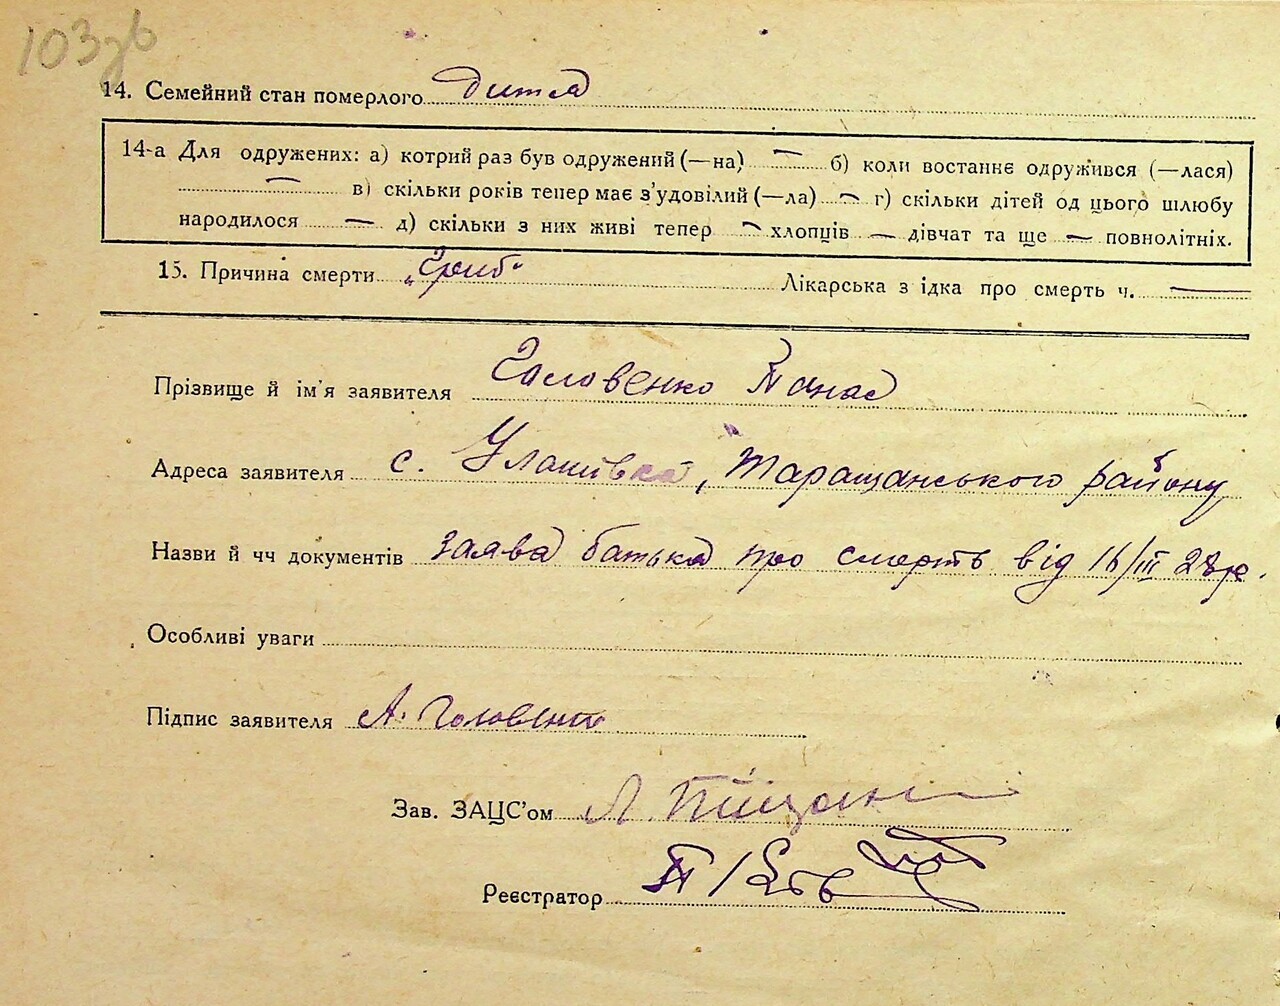 103зв
14. Семейний стан померлого дитя
14-а Для одружених: а) котрий раз був одружений (—на) — б) коли востаннє одружився (—лася)
— в) скільки років тепер має з’удовілий (—ла) — г) скільки дітей од цього шлюбу
народилося — д) скільки з них живі тепер — хлопців — дівчат та ще — повнолітніх.
15. Причина смерти „Грип“ Лікарська з ідка про смерть ч. —
Прізвище й ім’я заявителя Головенко Панас
Адреса заявителя с. Улашівка, Таращанського району
Назви й чч документів заява батька про смерть від 16/III 28 р.
Особливі уваги
Підпис заявителя А. Головенко
Зав. ЗАЦС’ом Л.
Реєстратор